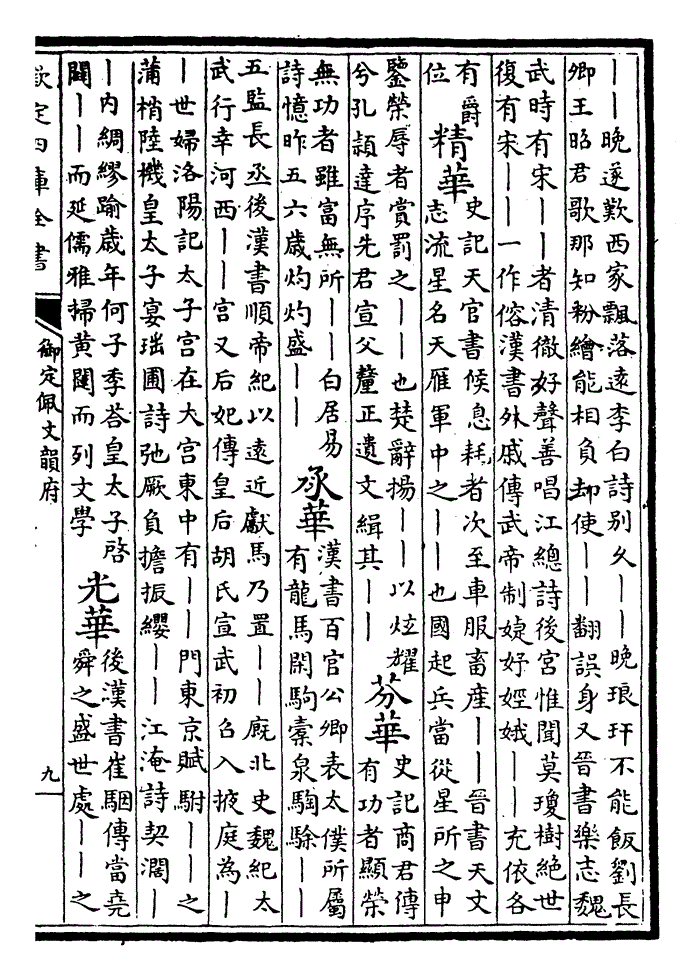 ｜｜晚遂歎西家飄落逺李白詩别乆｜｜晚琅玕不能飯劉長
卿王昭君歌那知粉繪能相負却使｜｜翻誤身又晉書樂志魏
武時有宋｜｜者清徹好聲善唱江總詩後宫惟聞莫瓊樹絶世
復有宋｜｜一作傛漢書外戚傳武帝制婕妤娙娥｜｜充依各
有爵
位
精華
史記天官書候息耗者次至車服畜産｜｜晉書天文
志流星名天雁軍中之｜｜也國起兵當從星所之申
鑒榮辱者賞罰之｜｜也楚辭揚｜｜以炫耀
兮孔頴達序先君宣父釐正遺文緝其｜｜
芬華
史記商君傳
有功者顯榮
無功者雖富無所｜｜白居易
詩憶昨五六歲灼灼盛｜｜
承華
漢書百官公卿表太僕所屬
有龍馬閑駒橐泉騊駼｜｜
五監長丞後漢書順帝紀以逺近獻馬乃置｜｜廐北史魏紀太
武行幸河西｜｜宫又后妃傳皇后胡氏宣武初召入掖庭為｜
｜世婦洛陽記太子宫在大宫東中有｜｜門東京賦駙｜｜之
蒲梢陸機皇太子宴圃詩弛厥負擔振纓｜｜江淹詩契濶｜
｜内綢繆踰歲年何子季荅皇太子啓
闢｜｜而延儒雅掃黄闥而列文學
光華
後漢書崔駰傳當堯
舜之盛世處｜｜之
欽定四庫全書
御定佩文韻府
九